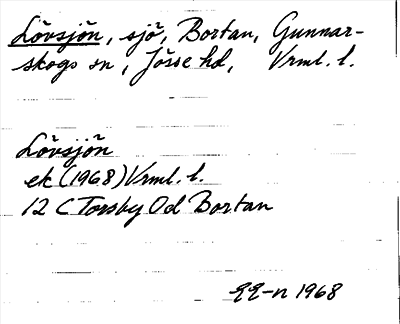 Lövsjön, sjö, Bortan, Gunnar-
skogs sn, Jösse hd, Vrml. l.
Lövsjön
ek (1968) Vrml. l.
12 C Torsby Od Bortan
1968